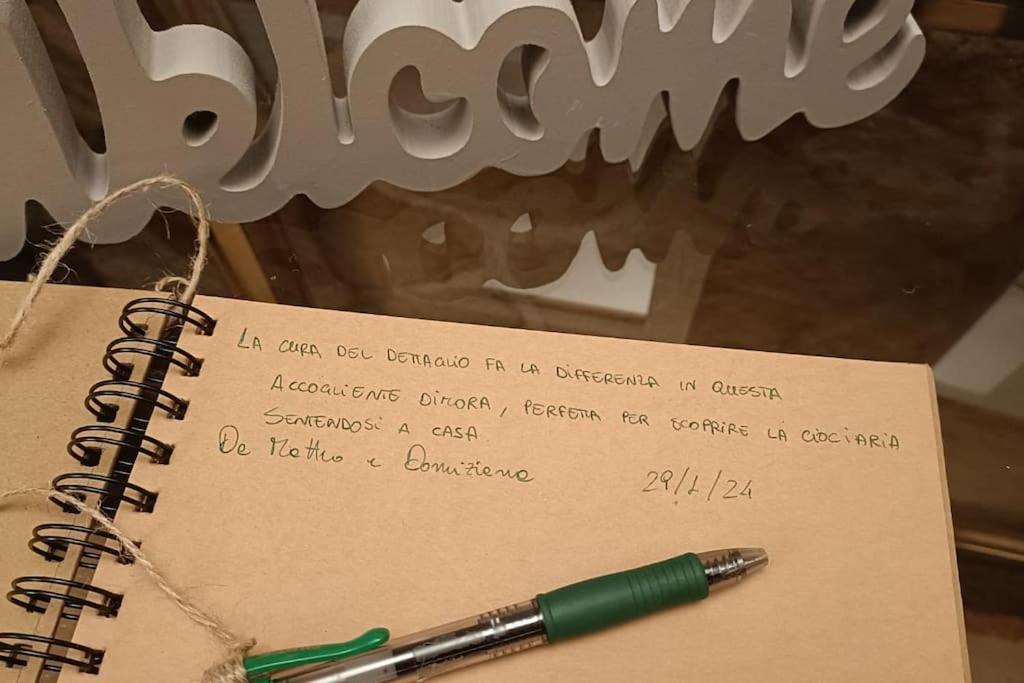 Welcome
LA CURA DEL DETTAGLIO FA LA DIFFERENZA IN QUESTA
ACCOGLIENTE DIMORA, PERFETTA PER SCOPRIRE LA CIOCIARIA
SENTENDOSI A CASA.
Da Matteo e Domiziana
29/1/24